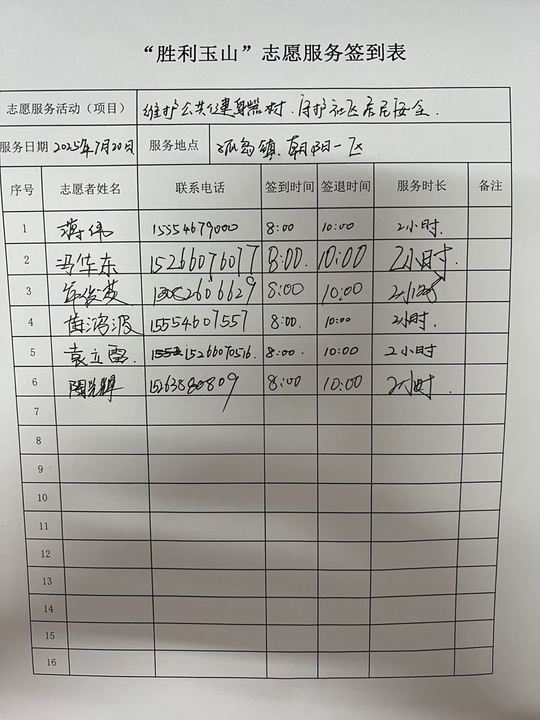 “胜利玉山”志愿服务签到表
志愿服务活动（项目） 维护公共健身器材，守护社区居民安全．
服务日期 2025年7月20日 服务地点 孤岛镇 朝阳一区
序号 志愿者姓名 联系电话 签到时间 签退时间 服务时长 备注
1 蒋伟 15554679000 8:00 10:00 2小时．
2 冯华东 15266076077 8:00． 10:00 2小时．
3 2606629 8:00 10:00 2小时
4 黄鸿波 15554607557 8:00． 10:00 2小时．
5 袁立 15266070516． 8:00． 10:00 2小时
6 15263880809 8:00 10:00 2小时．
7
8
9
10
11
12
13
14
15
16